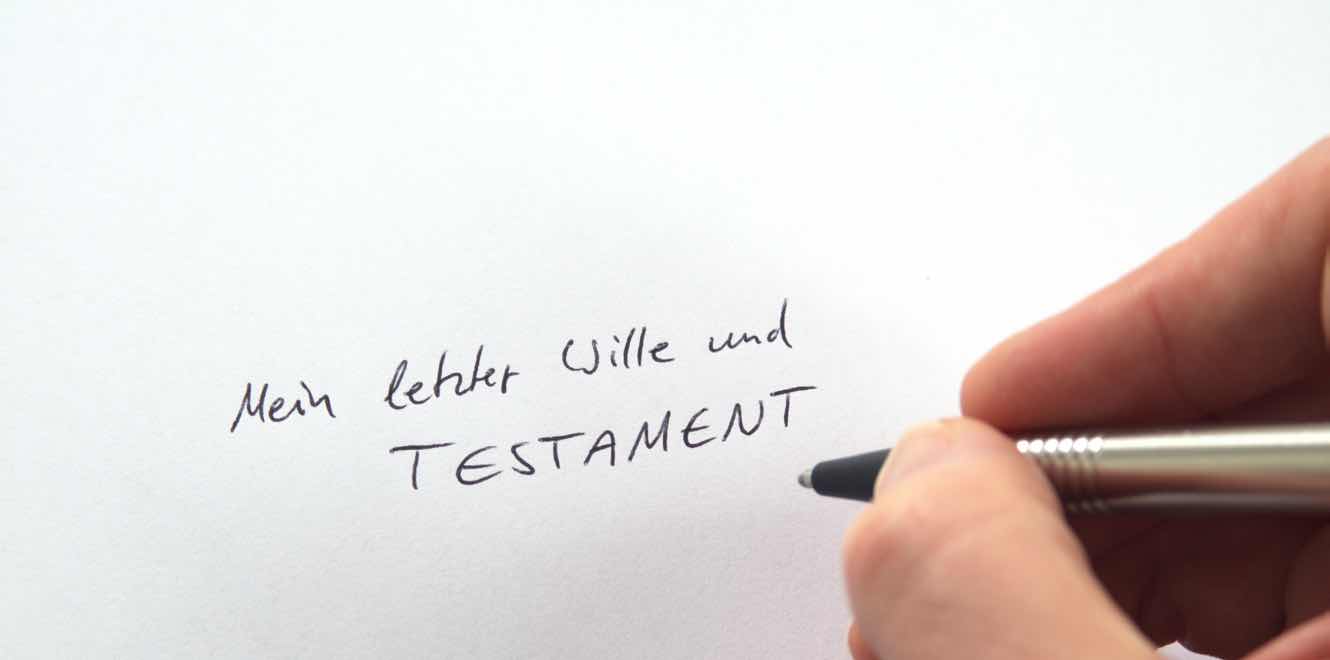 Mein letzter Wille und
TESTAMENT